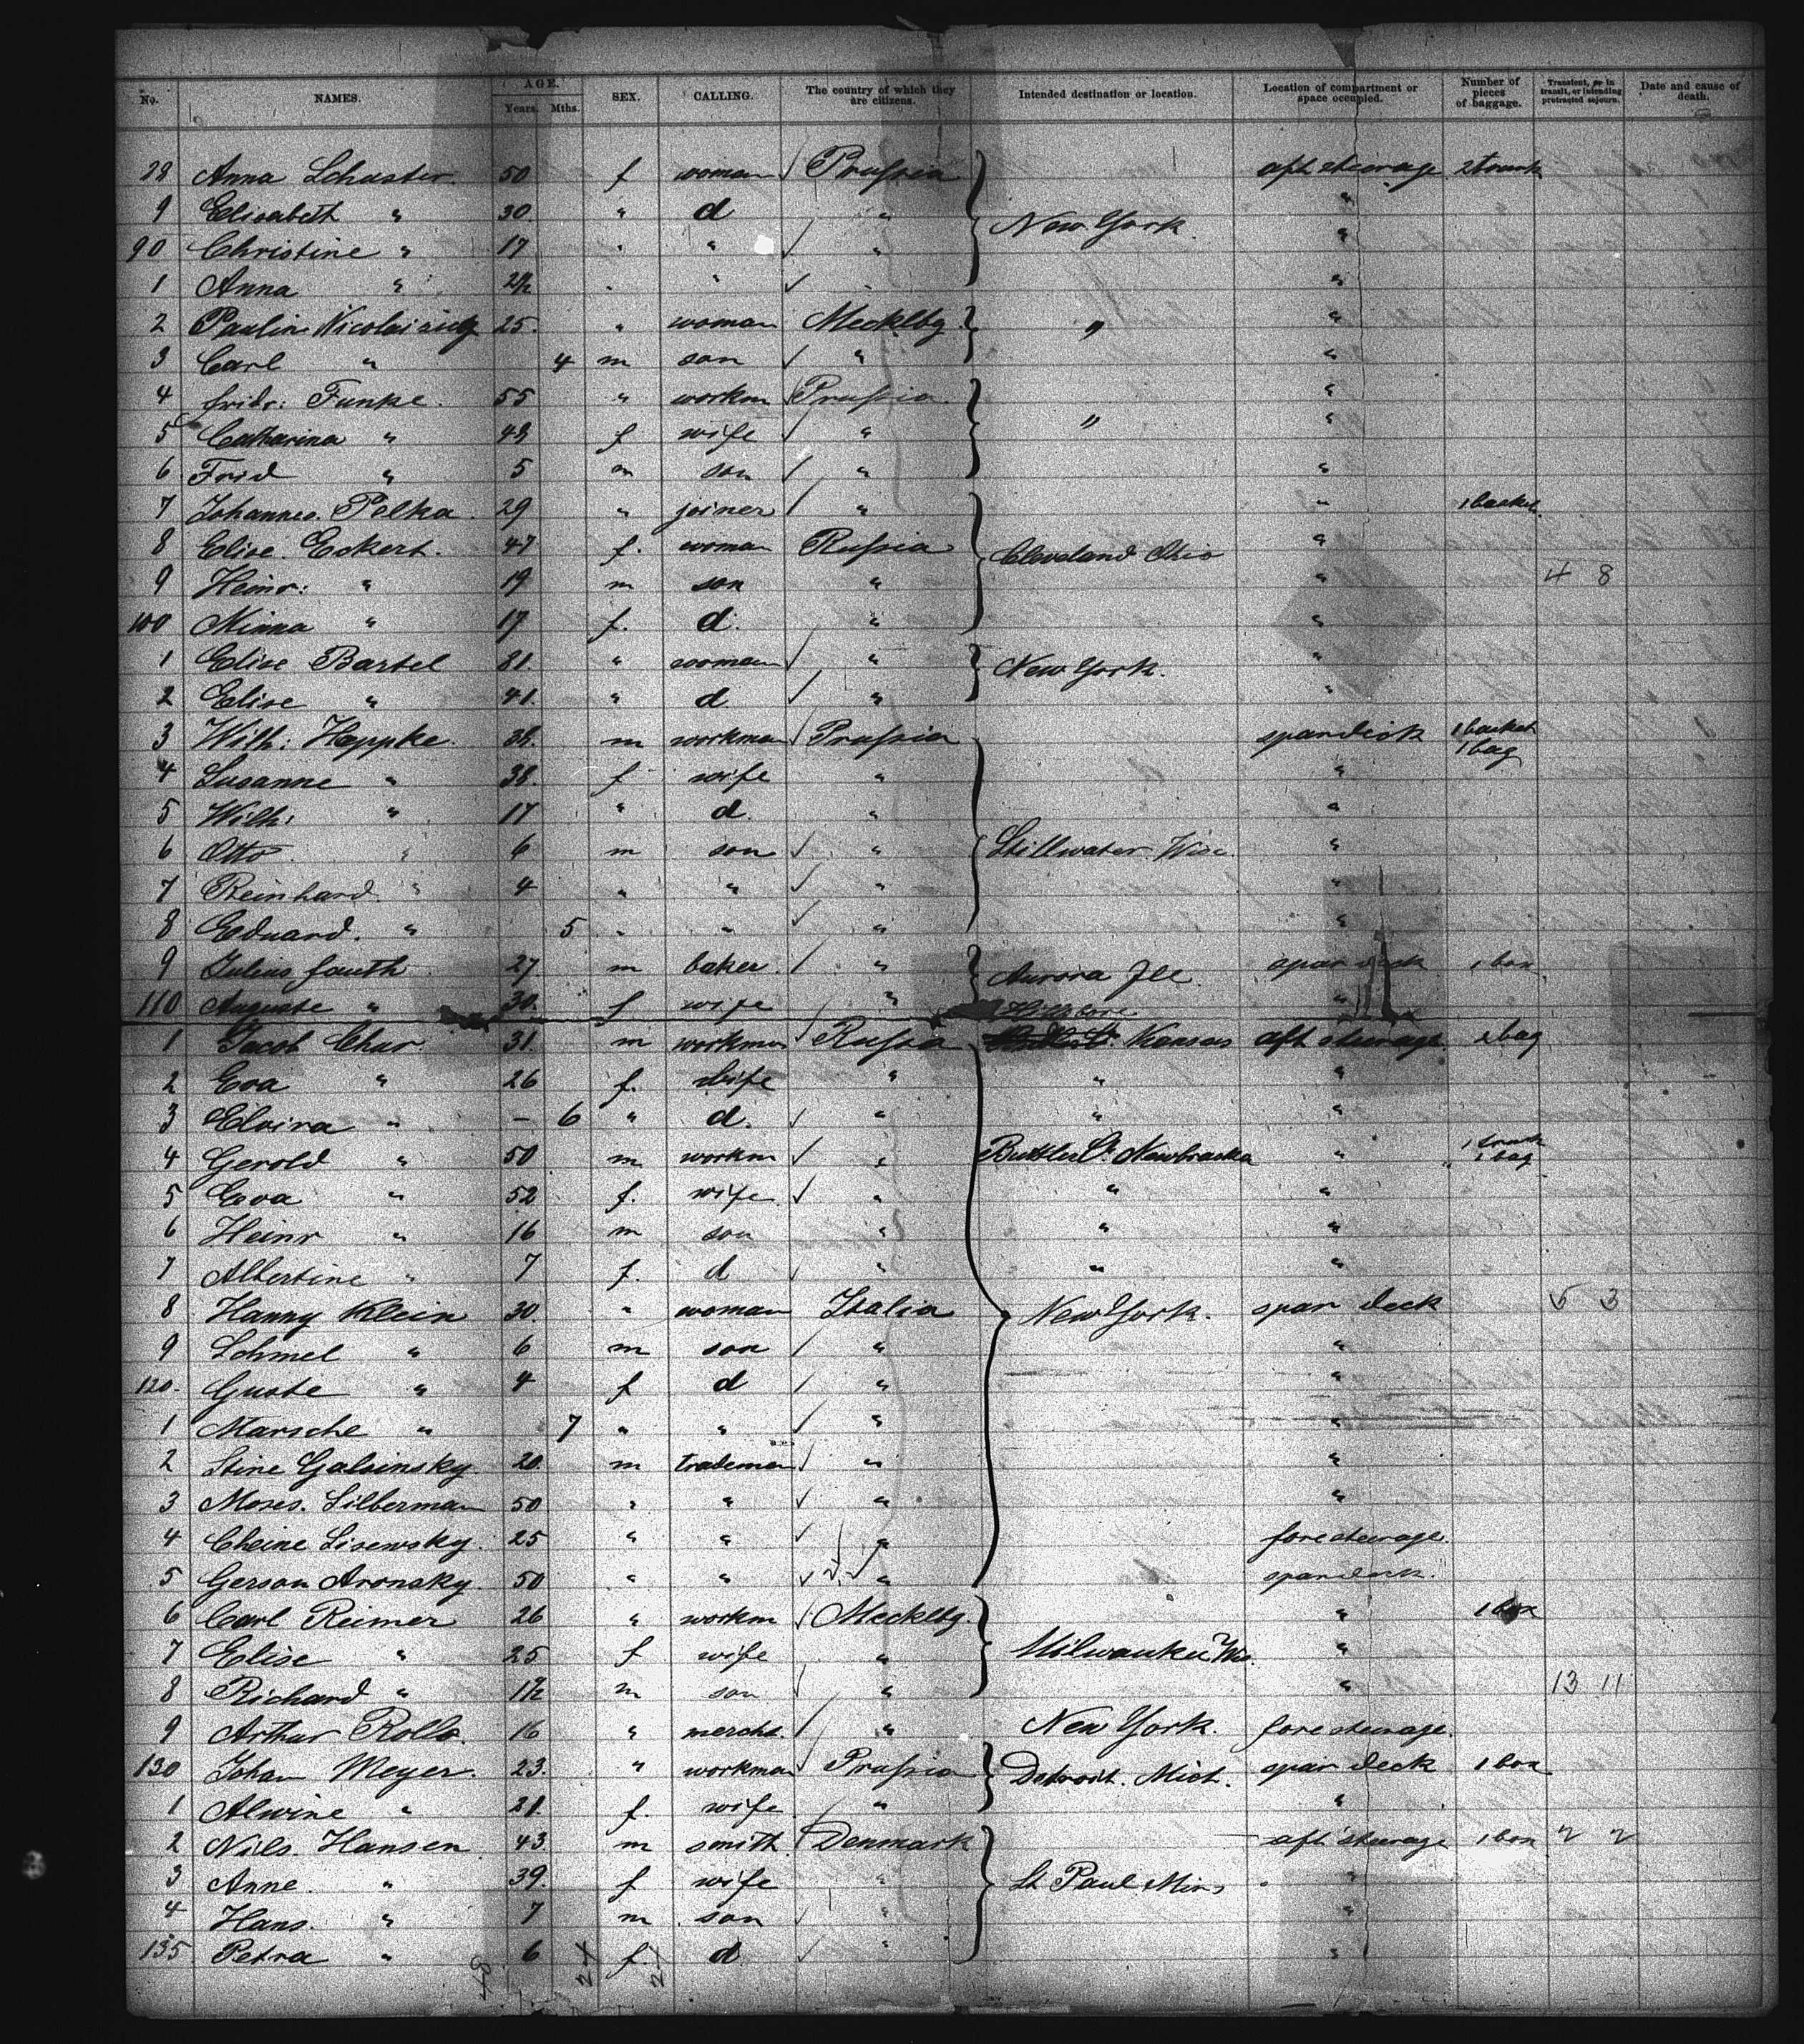 No. NAMES. AGE. Years. Mths. SEX. CALLING. The country of which they are citizens. Intended destination or location. Location of compartment or space occupied. Number of pieces of baggage. Transient, or in transit, or intending protracted sojourn. Date and cause of death.
28 Anna Schuster. 50 f woman Prussia aft steerage 2 trunk
9 Elisabeth " 30 " d " New York. "
90 Christine " 17 " " " "
1 Anna " 2½ " " " "
2 Paulin 25. " woman Mecklbg. " "
3 Carl " 4 m son " "
4 Fridr: Funke. 55 " workm Prussia. "
5 Catharina " 48 f wife " " "
6 Frid " 5 m son " "
7 Johannes. Polka. 29 " joiner " " 1 basket.
8 Elise. Eckert. 47 f. woman Russia Cleveland Ohio "
9 Heinr: " 19 m son " " 4 8
100 Minna " 17 f. d. " "
1 Elise Bartel 81. " woman " New York. "
2 Elise " 41. " d " "
3 Wilh: Heppke. 38. m workman Prussia spardeck 1 basket 1 bag
4 Susanne " 38. f wife " "
5 Wilh: " 17 " d. " "
6 Otto. " 6 m son " Stillwater. Wisc. "
7 Reinhard. " 4 " " " "
8 Eduard. " 5 " " " "
9 Julius Fauth 27 m baker. " Aurora Ill. spar deck 1 box
110 Auguste " 30. f wife " "
1 Jacob Chur. 31. m workman Russia Kansas aft steerage bag
2 Eva " 26 f. wife " " "
3 Elvira " - 6 " d. " " "
4 Gerold " 50 m workm " Buttler Ct. Newbraska " 1 trunk 1 bag
5 Eva " 52 f. wife " " "
6 Heinr " 16 m son " " "
7 Albertine " 7 f. d " " "
8 Hanny Klein 30. " woman Italia New York. spar deck 5 3
9 Schmel " 6 m son " "
120. Guste " 4 f d " "
1 Marsche " 7 " " " "
2 Stine Galvinsky. 20. m trademan " "
3 Moses. Silberman 50 " " " "
4 Cheine Lisewsky. 25 " " " fore steerage.
5 Gerson Aronsky. 50 " " " spardeck.
6 Carl Reimer 26 " workm Mecklbg. " 1 box
7 Elise " 25 f wife " Milwaukee Wis. "
8 Richard " 1½ m son " " 13 11
9 Arthur Rollo. 16 " mercht. " New York. fore steerage.
130 Johan Meyer. 23. " workman Prussia Detroit. Mich. spar deck 1 box
1 Alwine " 21. f. wife. " "
2 Nils. Hansen. 43. m smith. Denmark aft steerage 1 box 2 2
3 Anne. " 39. f wife " St Paul Mins "
4 Hans. " 7 m son " "
135 Petra " 6 f. d " "
48 24 24